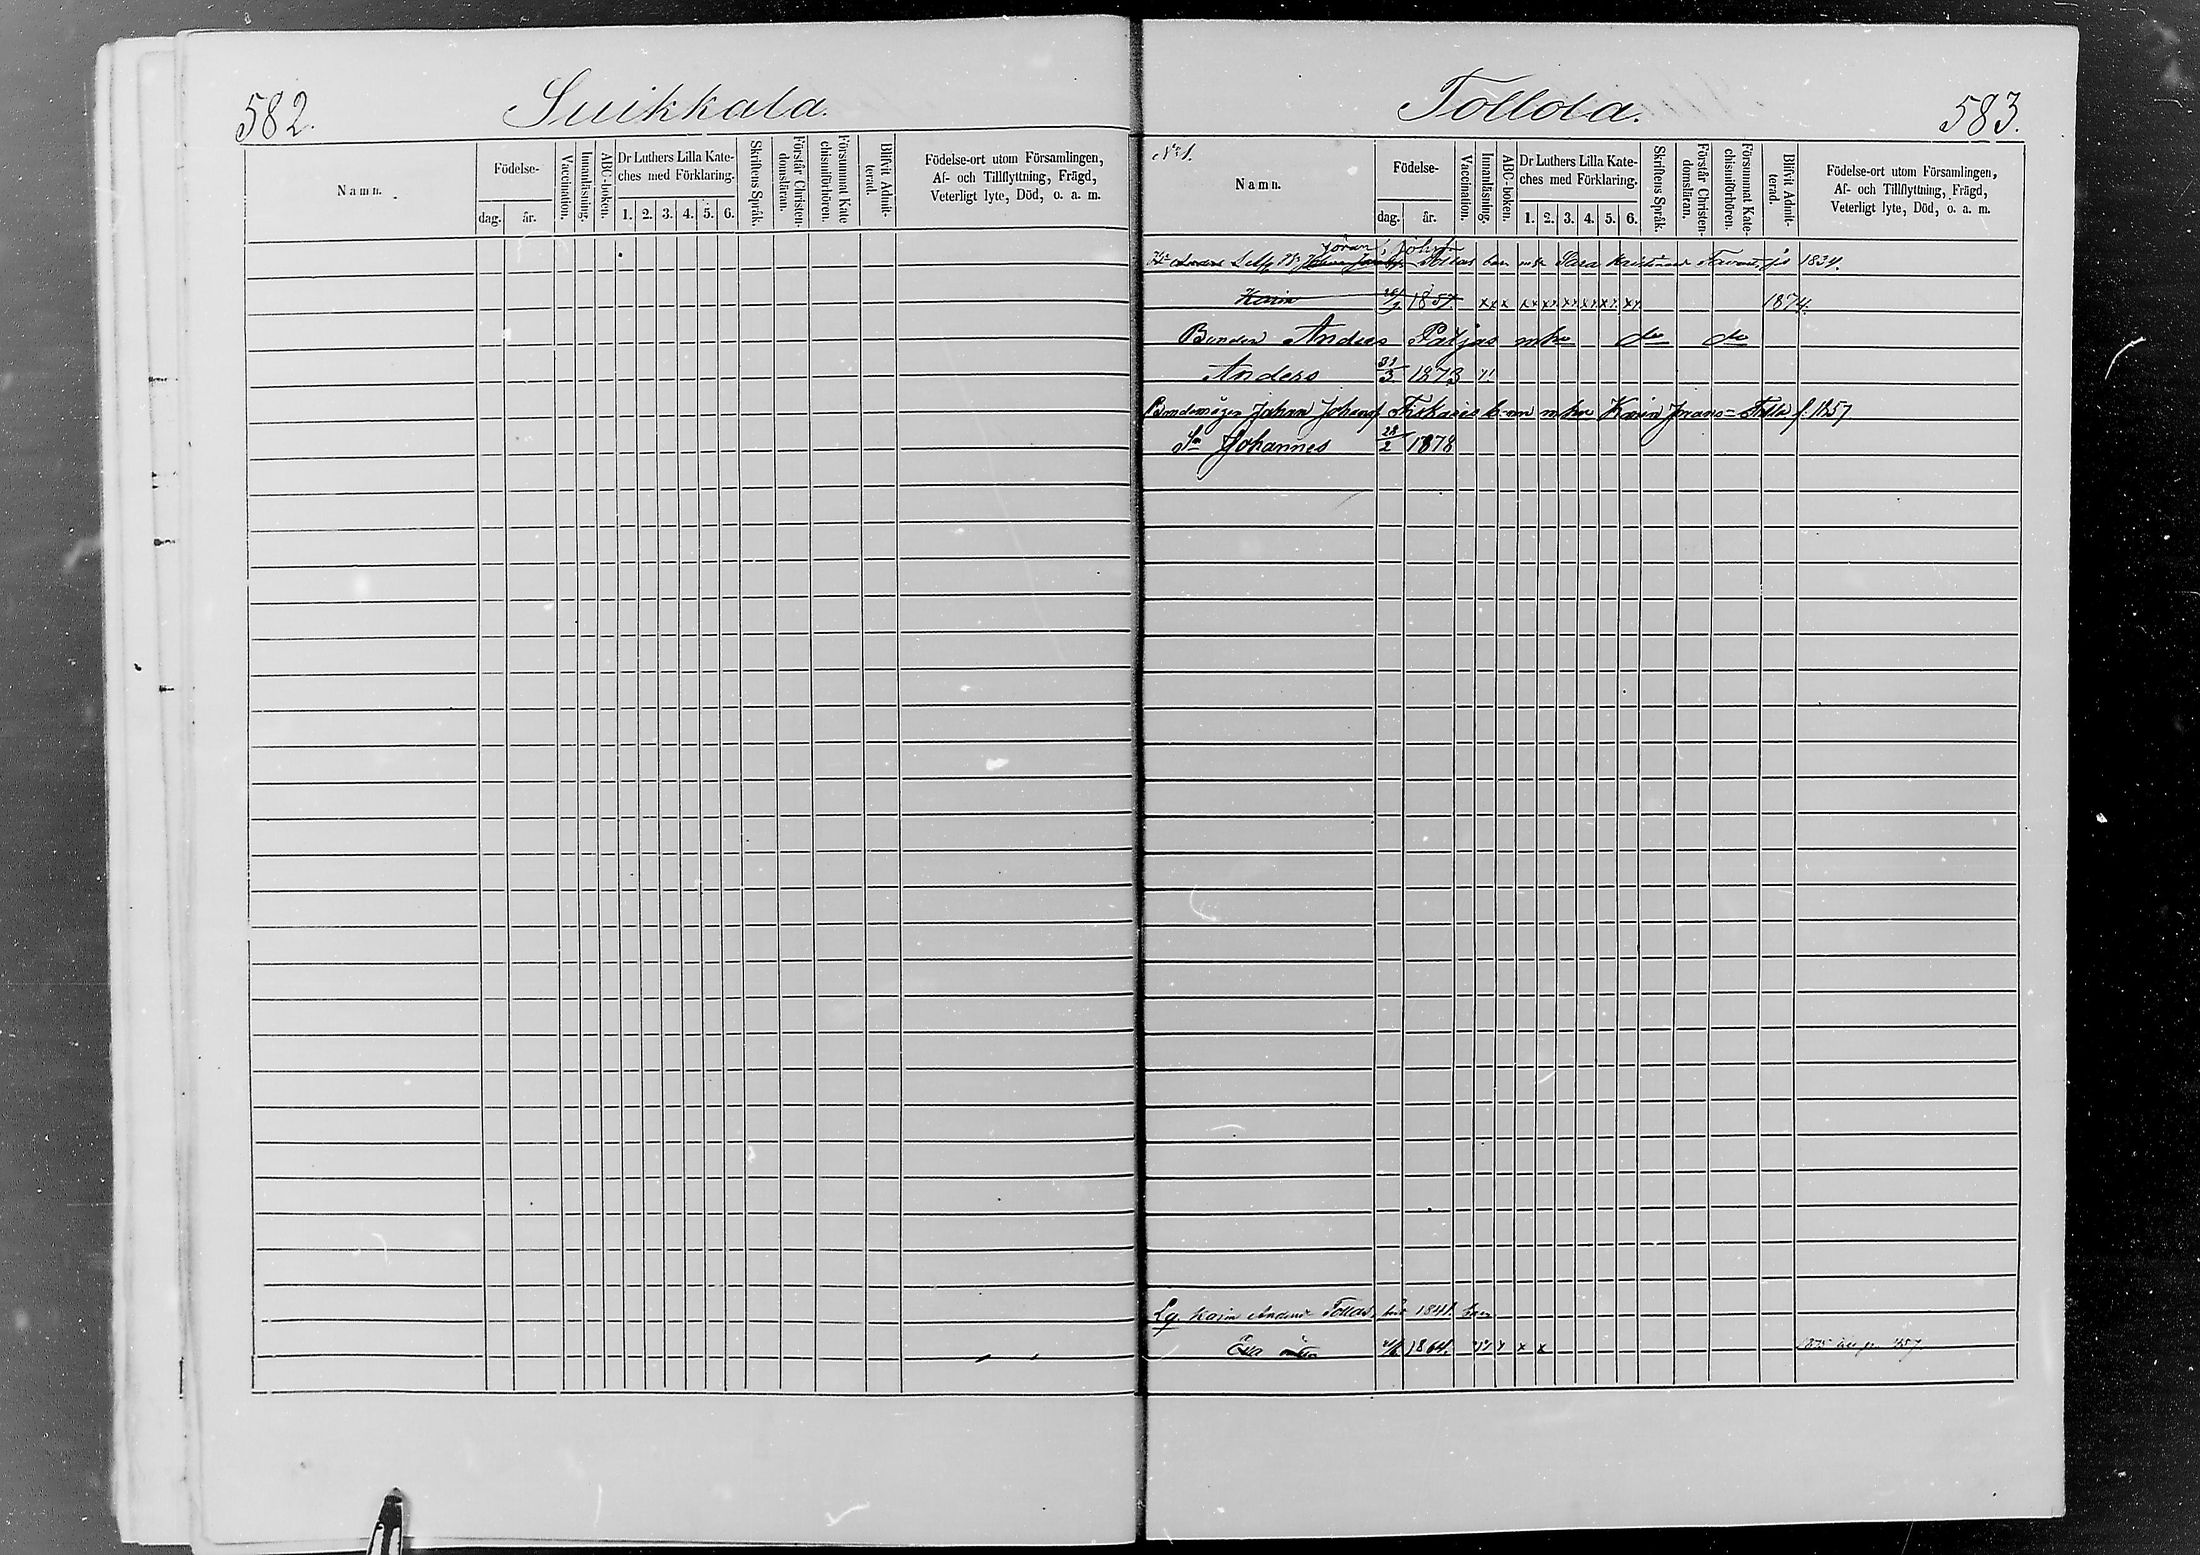 582.
Suikkala.
Namn.
Födelse-
dag.
år.
Vaccination.
Innanläsning.
ABC-boken.
Dr Luthers Lilla Kate-
ches med Förklaring.
1. 2. 3. 4. 5. 6.
Skriftens Språk.
Förstår Christen-
domsläran.
Försummat Kate
chismiförhören.
Blifvit Admit-
terad.
Födelse-ort utom Församlingen,
Af- och Tillflyttning, Frägd,
Veterligt lyte, Död, o. a. m.
Tollola.
583.
No 1.
Namn.
Födelse-
dag.
år.
Vaccination.
Innanläsning.
ABC-boken.
Dr Luthers Lilla Kate-
ches med Förklaring.
1. 2. 3. 4. 5. 6.
Skriftens Språk.
Förstår Christen-
domsläran.
Försummat Kate-
chismiförhören.
Blifvit Admit-
terad.
Födelse-ort utom Församlingen,
Af- och Tillflyttning, Frägd,
Veterligt lyte, Död, o. a. m.
Göran
Sara 1834.
Karin 1857 x x x x x x x x x x x x x x x 1874.
Bonden Anders Patjas mhu do do
Anders 1873
Johan Johansf mhu Karin f. 1857
Sn Johannes 28/2 1878
Lg. Karin Anders Tollas, 1841. barn
Eva 1864. x x 1875